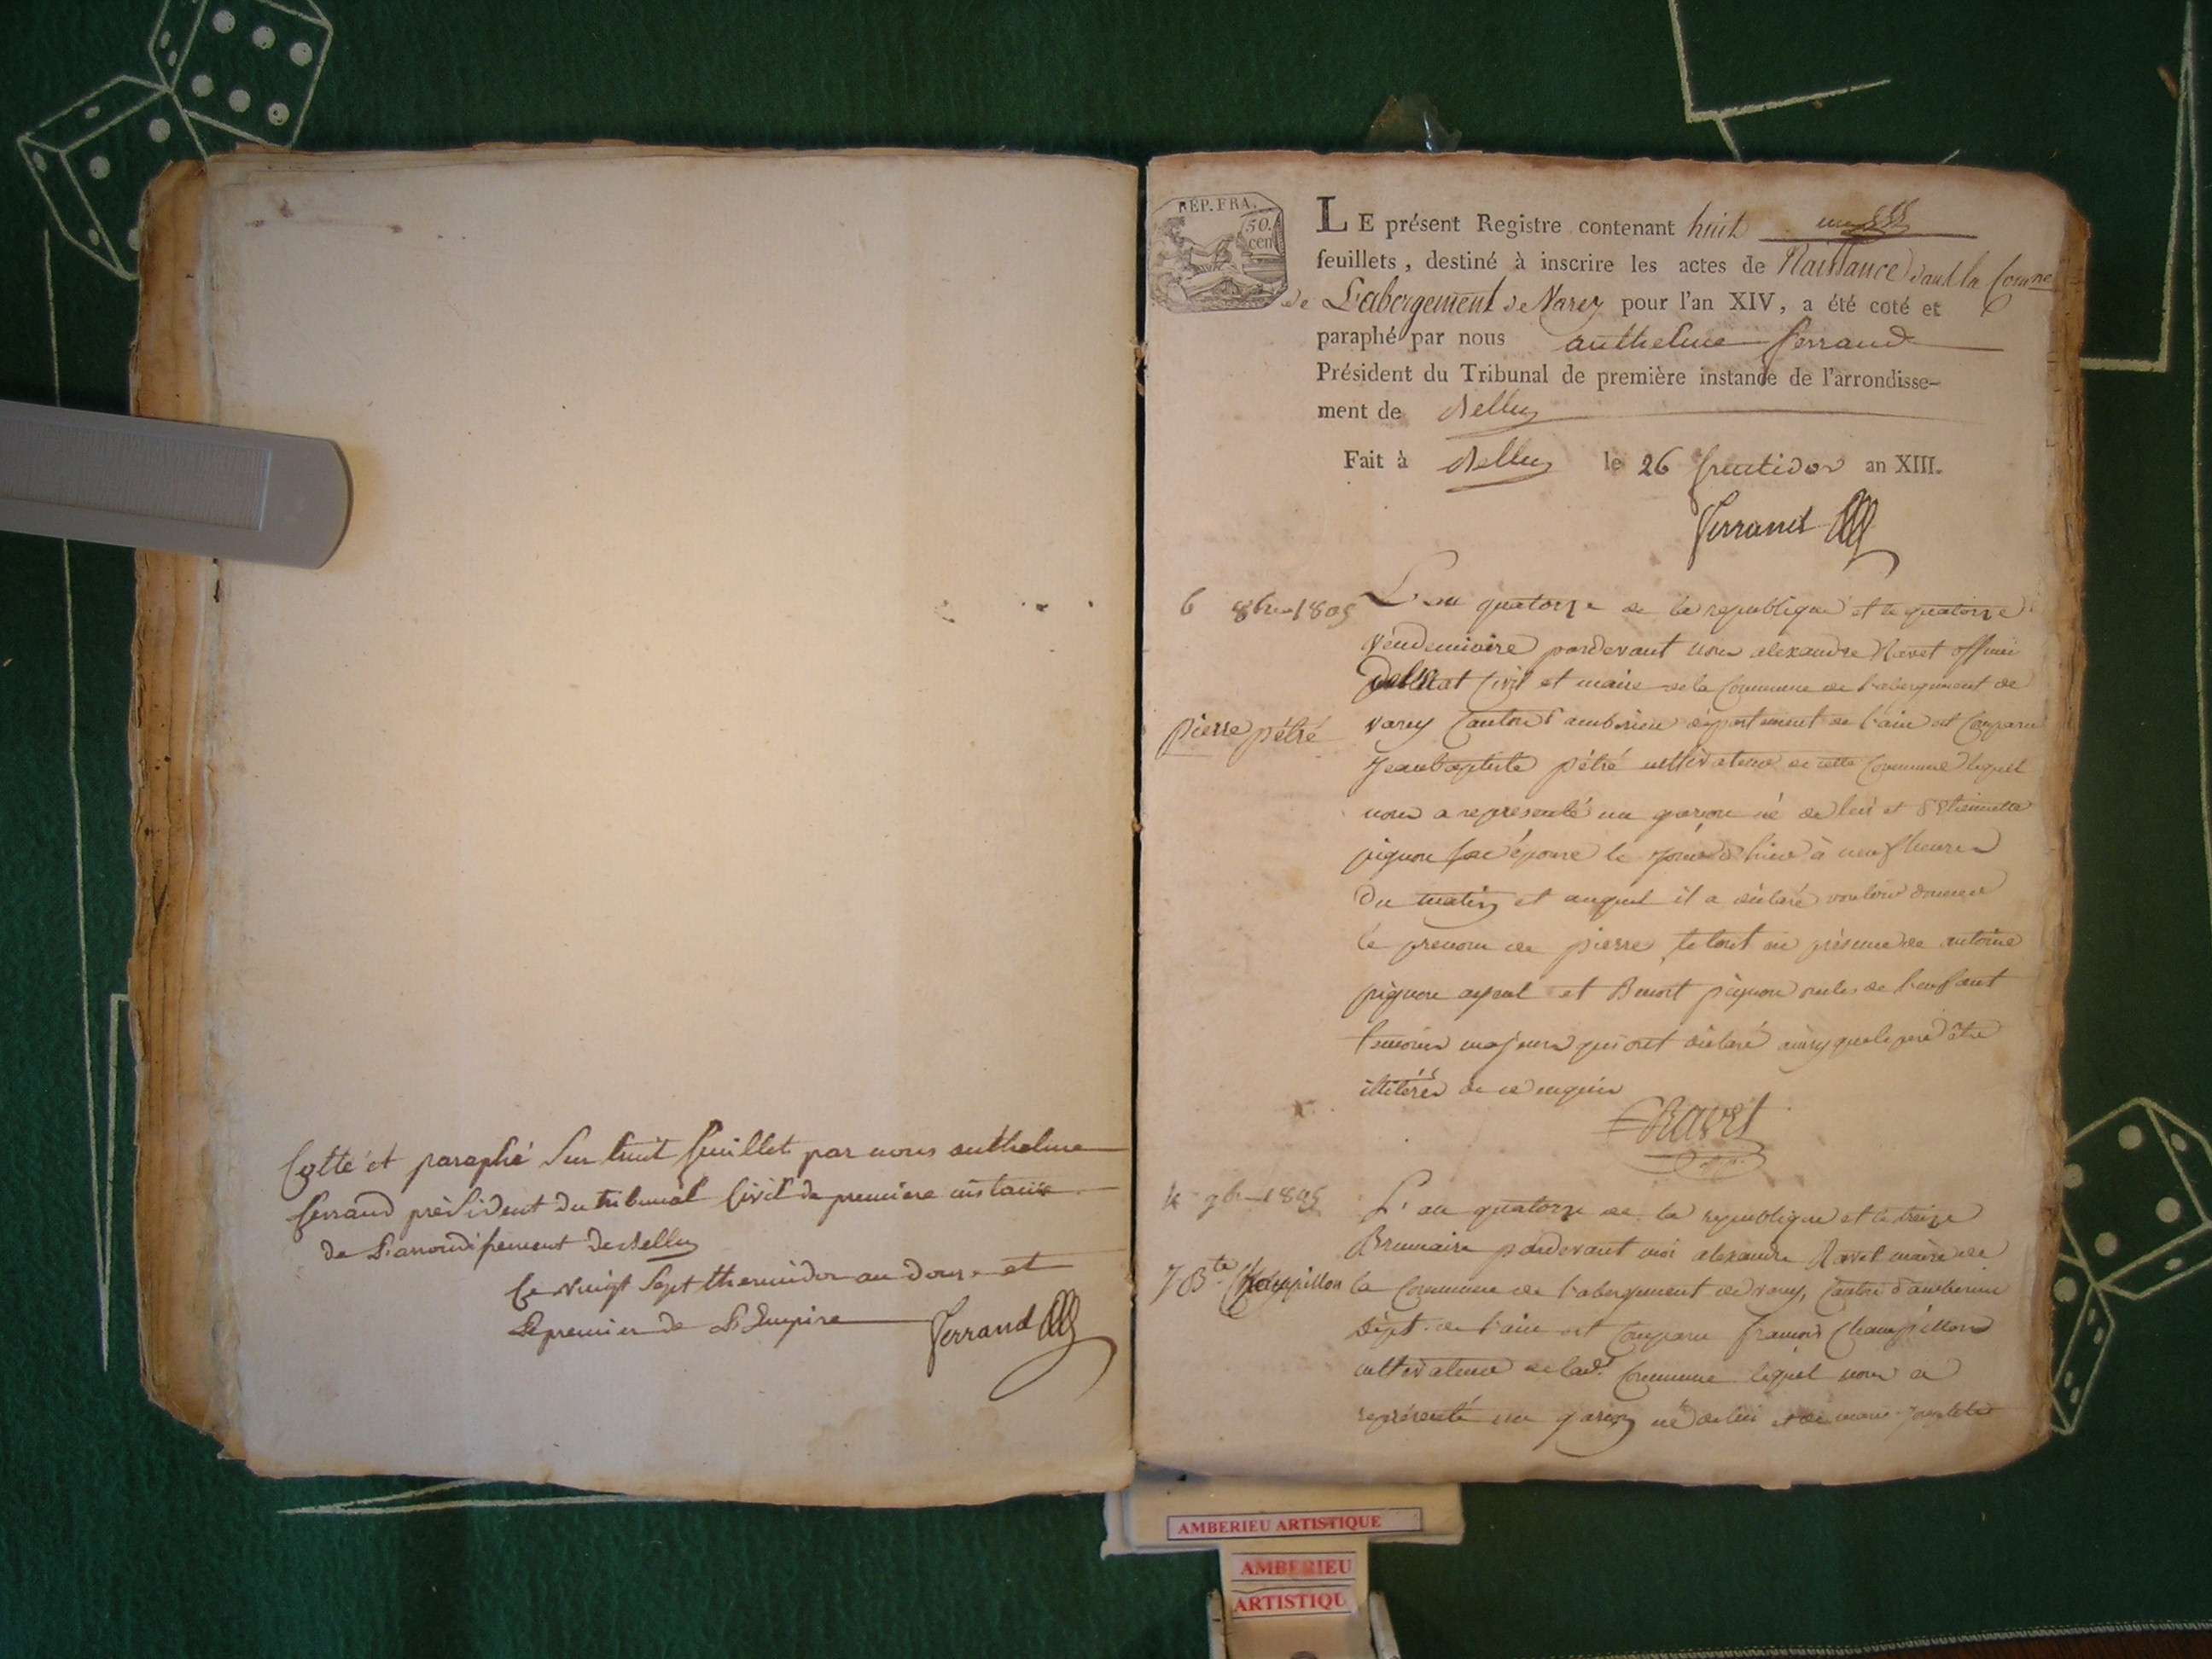 Cotté et paraphé Sur huit feuillets par nous anthelme
ferrand président du tribunal Civil de premiere instance
de L'arrondissement de Belley
Ce vingt Sept thermidor an douze et
Le premier de L'Empire Ferrand
REP. FRA.
50.
cent
LE présent Registre contenant huit
feuillets, destiné à inscrire les actes de Naissance dans la Comne
de L'abergement de Varey pour l'an XIV, a été coté et
paraphé par nous anthelme ferrand
Président du Tribunal de première instance de l'arrondisse-
ment de Belley
Fait à Belley le 26 fructidor an XIII.
Ferrand
6 8bre 1805
L'an quatorze de la republique et le quatorze
Vendemiaire pardevant nous alexandre Ravet officier
de l'Etat Civil et maire de la Commune de l'abergement de
pierre pétré
varey Canton d'amberieu département de l'ain est Comparu
Jean baptiste pétré cultivateur de cette Commune lequel
nous a representé un garçon né de lui et d'Etiennette
pignon son épouse le jour d'hier à neuf heures
du matin et auquel il a déclaré vouloir donner
le prenom de pierre, le tout en présence de antoine
pignon ayeul et Benoit pignon oncle de l'enfant
temoins majeurs qui ont déclaré ainsy que le pere être
illiterés de ce enquis
Ravet
4 9bre 1805
L'an quatorze de la republique et le treize
Brumaire pardevant moi alexandre Ravet maire de
J Bte Champillon
la Commune de l'abergement de varey, Canton d'amberieu
Dépt. de l'ain est Comparu françois Champillon
cultivateur de lade. Commune lequel nous a
représenté un garçon né de lui et de marie
AMBERIEU ARTISTIQUE
AMBERIEU
ARTISTIQU